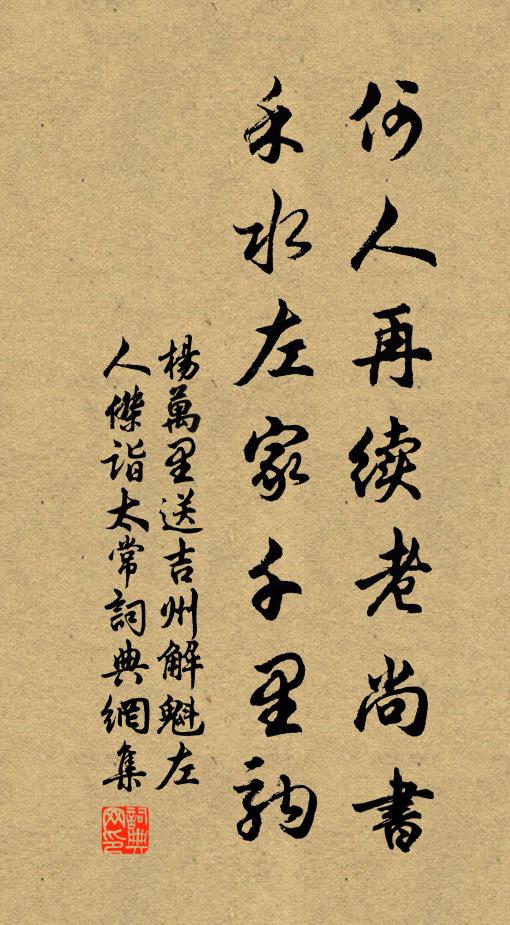 何人再續老尚書
禾水左家千里駒
楊萬里送吉州解魁左
人傑詣太常詞典網集
詞典网印